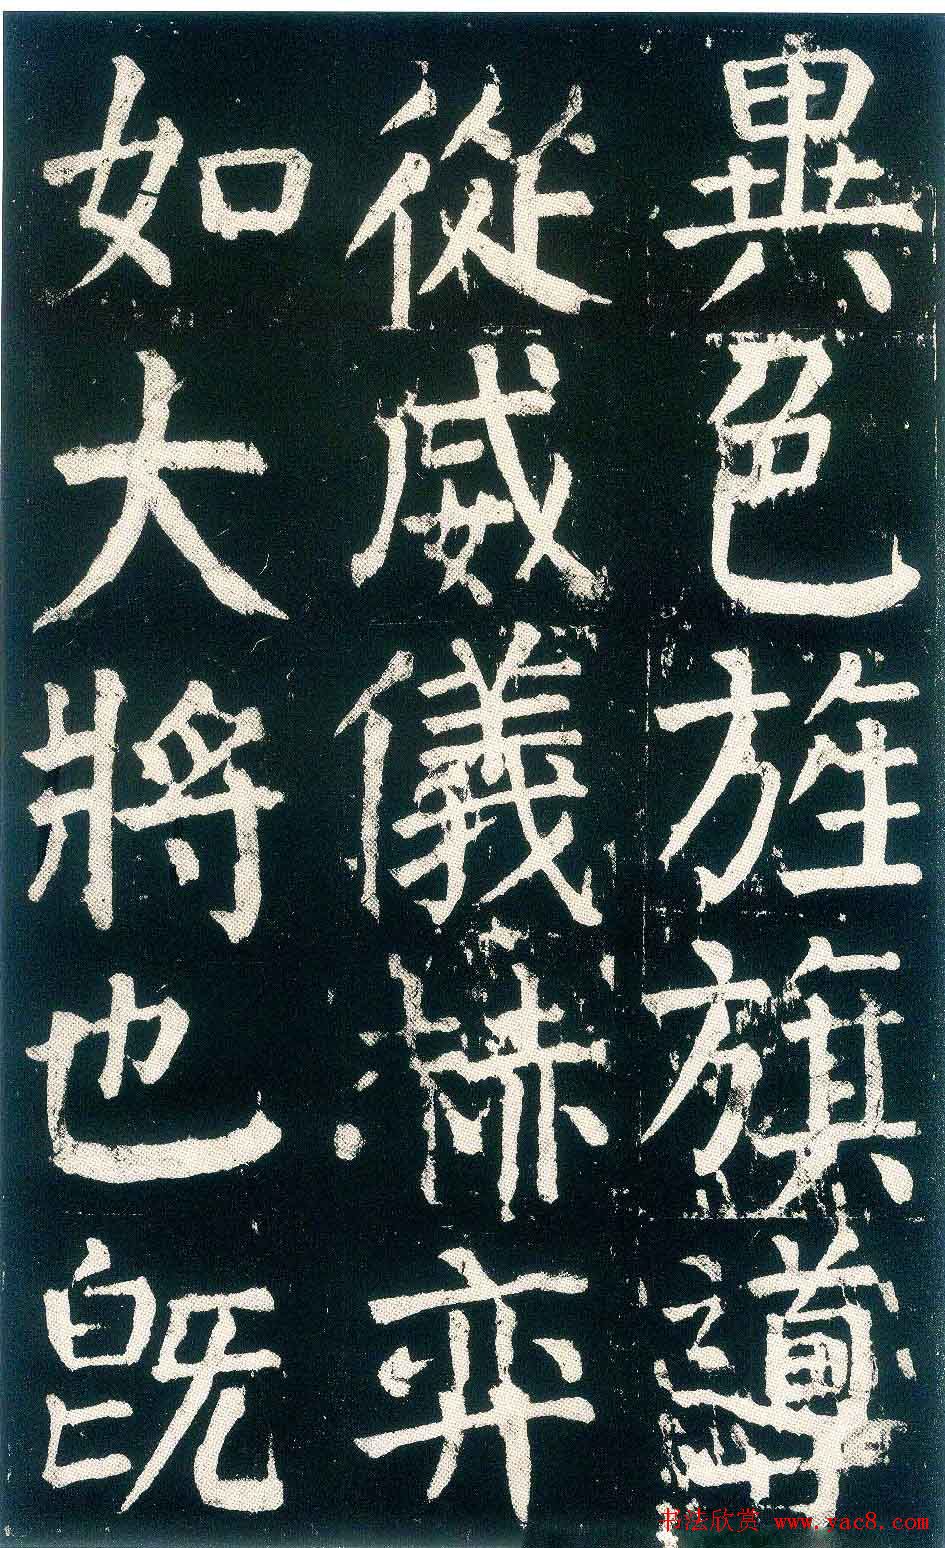 異色旌旗導
從威儀赫弈
如大將也既
书法欣赏 www.yac8.com